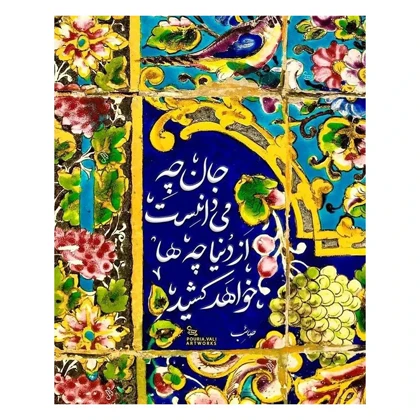 جان چه
می‌دانست
از دنیا چه‌ها
خواهد کشید
صائب
POURIA.VALI
ARTWORKS